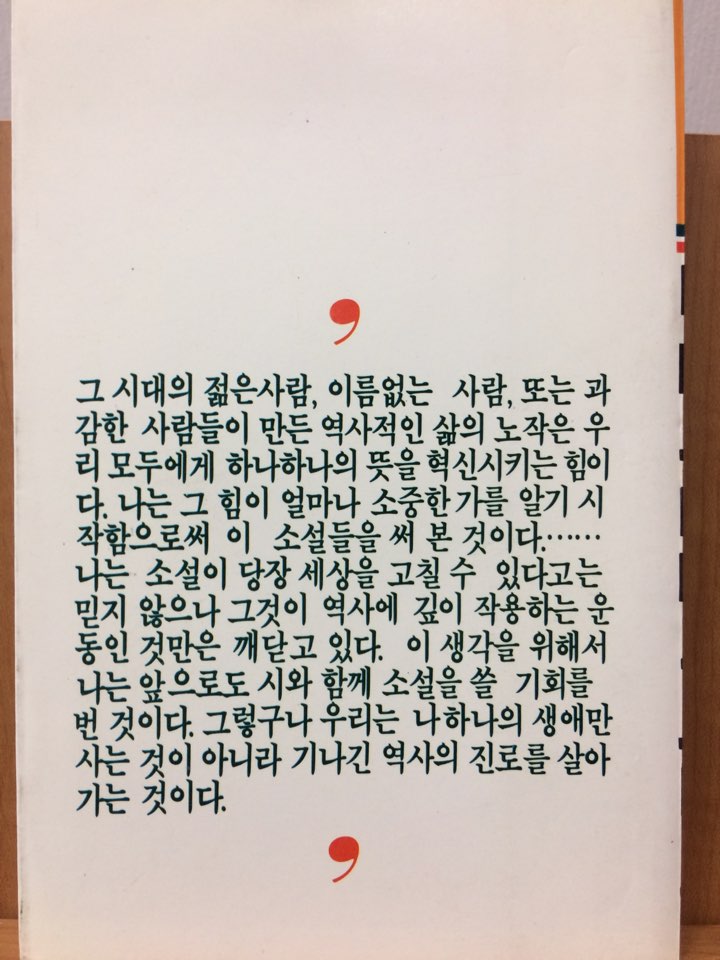 그 시대의 젊은사람, 이름없는 사람, 또는 과
감한 사람들이 만든 역사적인 삶의 노작은 우
리 모두에게 하나하나의 뜻을 혁신시키는 힘이
다. 나는 그 힘이 얼마나 소중한가를 알기 시
작함으로써 이 소설들을 써 본 것이다.……
나는 소설이 당장 세상을 고칠 수 있다고는
믿지 않으나 그것이 역사에 깊이 작용하는 운
동인 것만은 깨닫고 있다. 이 생각을 위해서
나는 앞으로도 시와 함께 소설을 쓸 기회를
번 것이다. 그렇구나 우리는 나하나의 생애만
사는 것이 아니라 기나긴 역사의 진로를 살아
가는 것이다.